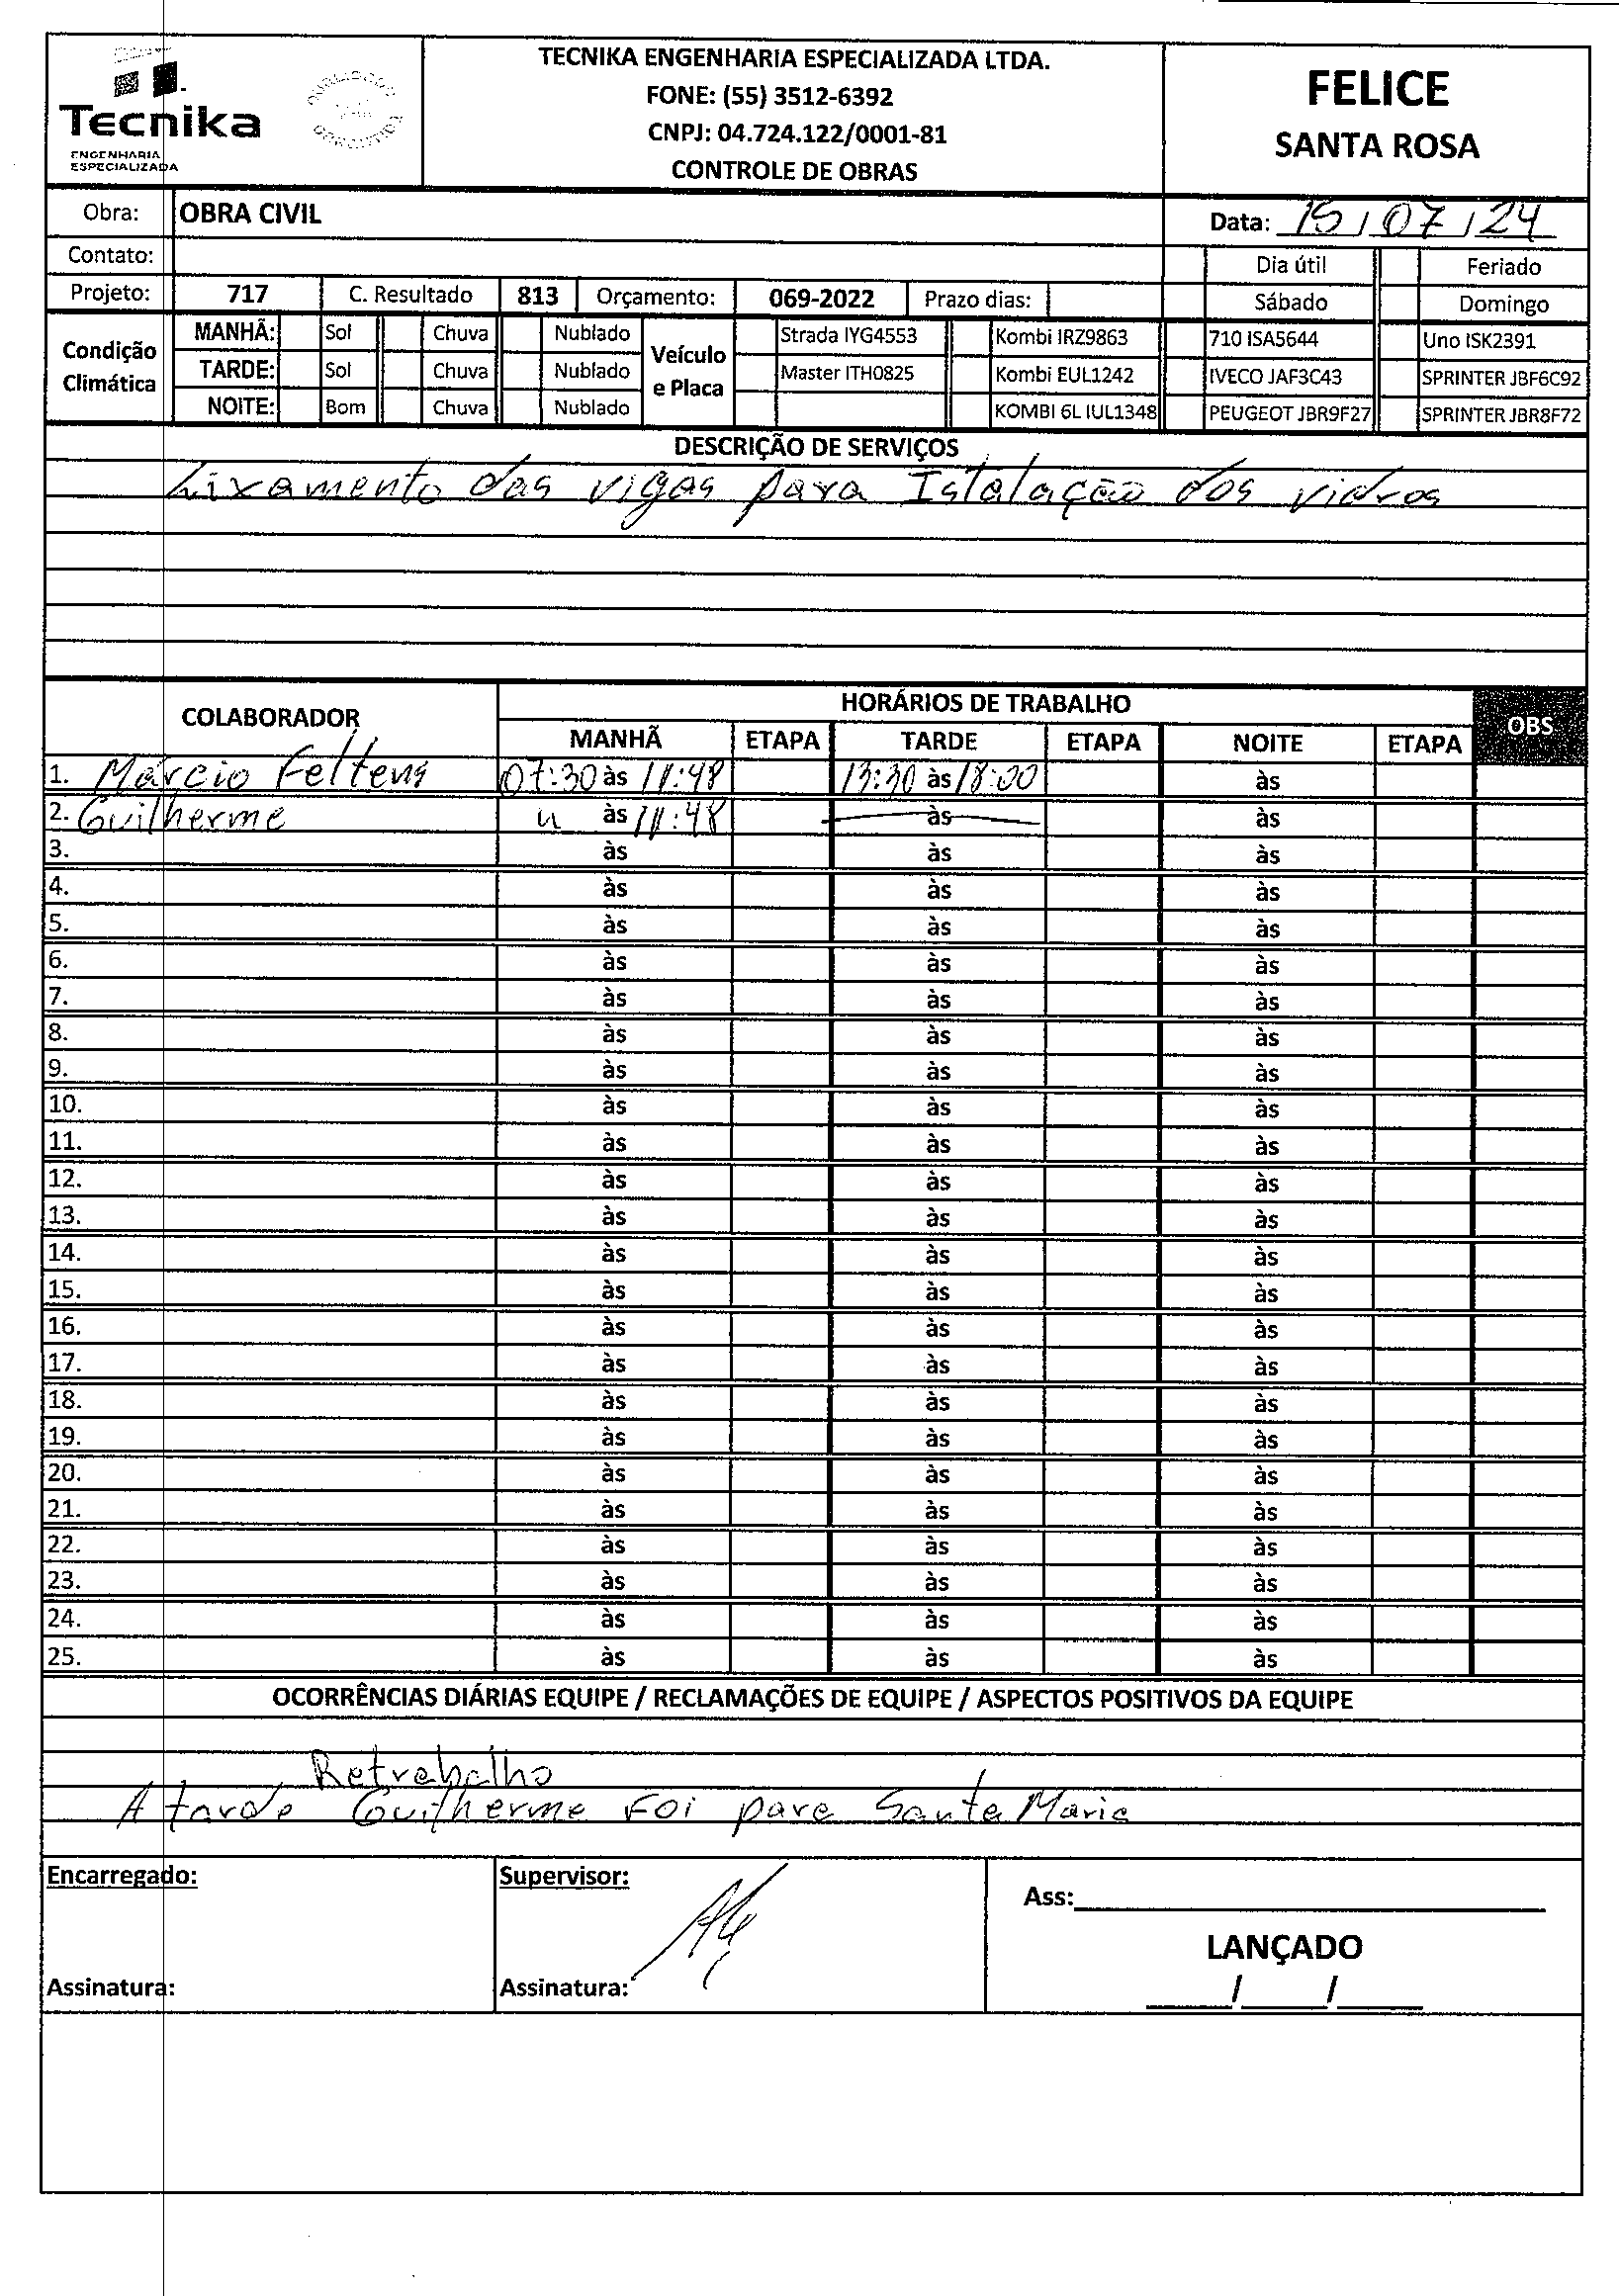 Tecnika
ENGENHARIA
ESPECIALIZADA
TECNIKA ENGENHARIA ESPECIALIZADA LTDA.
FONE: (55) 3512-6392
CNPJ: 04.724.122/0001-81
CONTROLE DE OBRAS
FELICE
SANTA ROSA
Obra: OBRA CIVIL
Data: 15/07/24
Contato:
Dia útil Feriado
Projeto: 717 C. Resultado 813 Orçamento: 069-2022 Prazo dias:
Sábado Domingo
Condição Climática
MANHÃ: Sol Chuva Nublado
TARDE: Sol Chuva Nublado
NOITE: Bom Chuva Nublado
Veículo e Placa
Strada IYG4553 Kombi IRZ9863 710 ISA5644 Uno ISK2391
Master ITH0825 Kombi EUL1242 IVECO JAF3C43 SPRINTER JBF6C92
KOMBI 6L IUL1348 PEUGEOT JBR9F27 SPRINTER JBR8F72
DESCRIÇÃO DE SERVIÇOS
Lixamento das vigas para Istalação dos vidros
COLABORADOR
HORÁRIOS DE TRABALHO
OBS
MANHÃ ETAPA TARDE ETAPA NOITE ETAPA
1. Márcio Feltens 07:30 às 11:48 13:30 às 18:00 às
2. Guilherme u às 11:48 às às
3. às às às
4. às às às
5. às às às
6. às às às
7. às às às
8. às às às
9. às às às
10. às às às
11. às às às
12. às às às
13. às às às
14. às às às
15. às às às
16. às às às
17. às às às
18. às às às
19. às às às
20. às às às
21. às às às
22. às às às
23. às às às
24. às às às
25. às às às
OCORRÊNCIAS DIÁRIAS EQUIPE / RECLAMAÇÕES DE EQUIPE / ASPECTOS POSITIVOS DA EQUIPE
Retrabalho
A tarde Guilherme Foi para Santa Maria
Encarregado:
Supervisor:
Ass:
LANÇADO
Assinatura:
Assinatura:
/ /